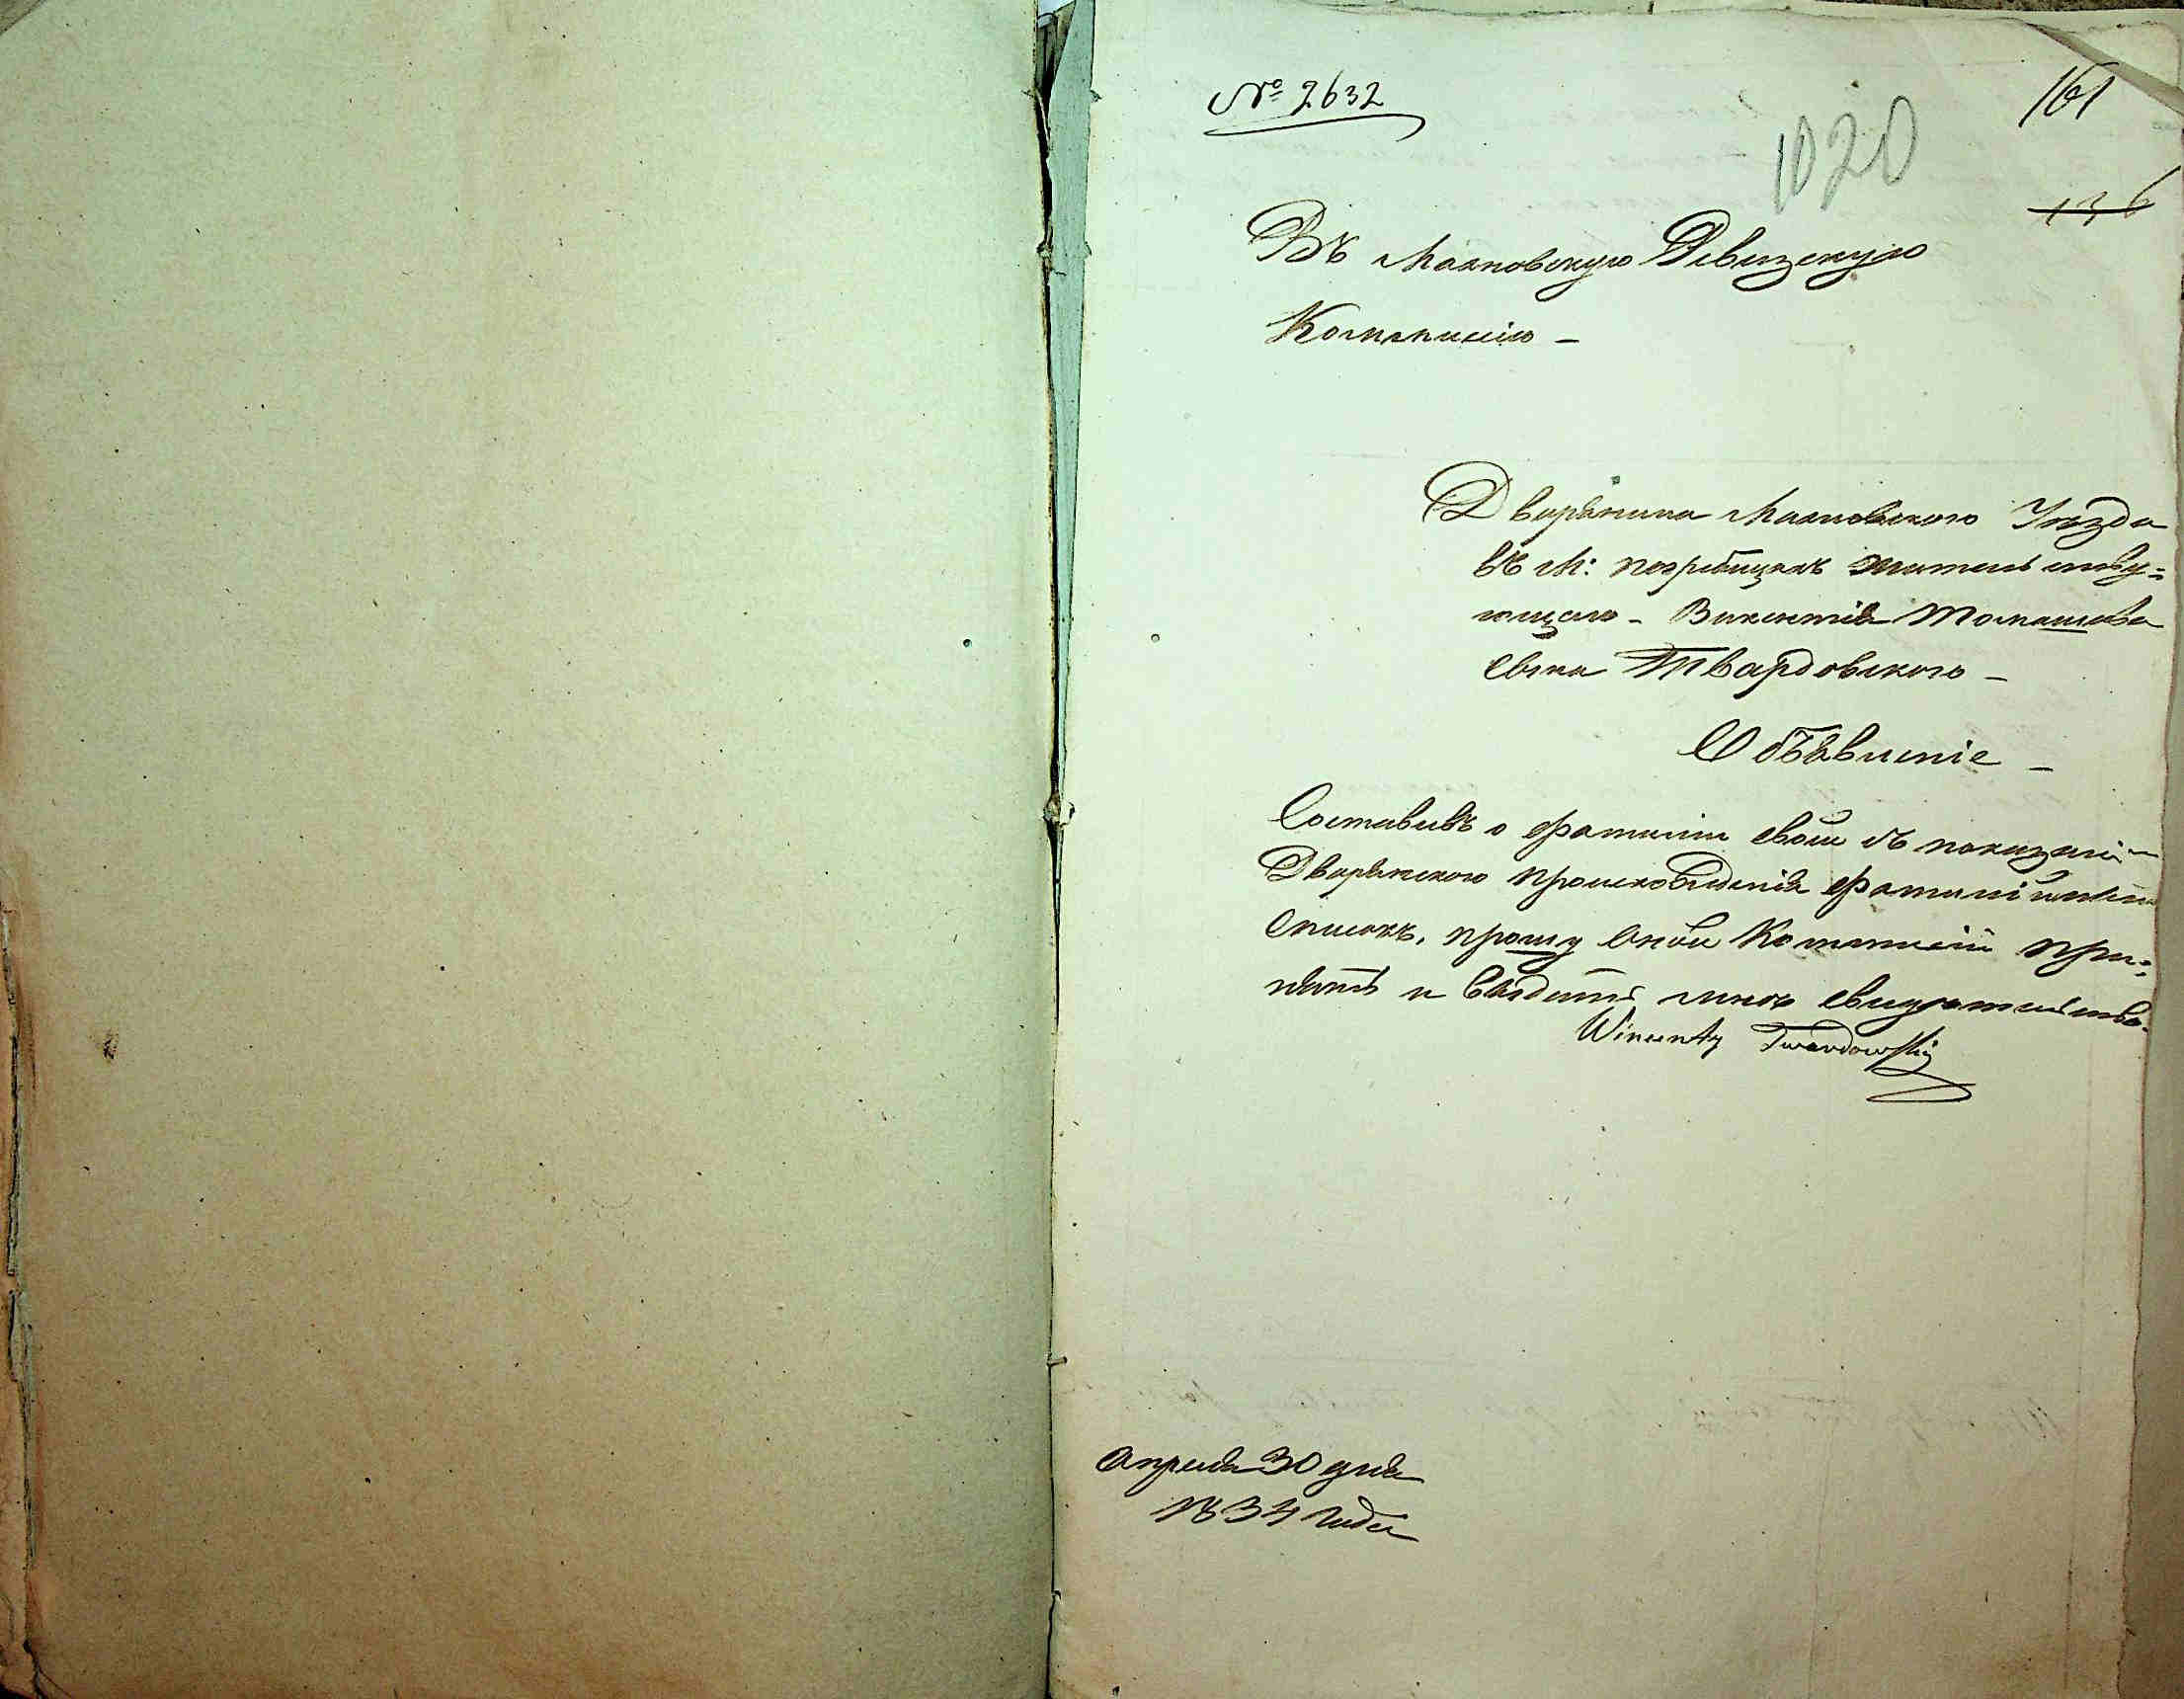 № 2632
161
1020
136
Въ Махновскую Ревизскую
Коммисiю –
Дворянина Махновскаго Уѣзда
въ М: погребищахъ жительству=
ющаго – Викентiя Томашева
сына Твардовскаго –
Объявленiе –
Составивъ о фамилiи своей съ показанiем
Дворянскаго происхожденiя фамилiйный
списокъ, прошу оной Коммисiи при=
нять и выдать мнѣ свидѣтельство.
Wincenty Twardowski
Апреля 30 дня
1834 года